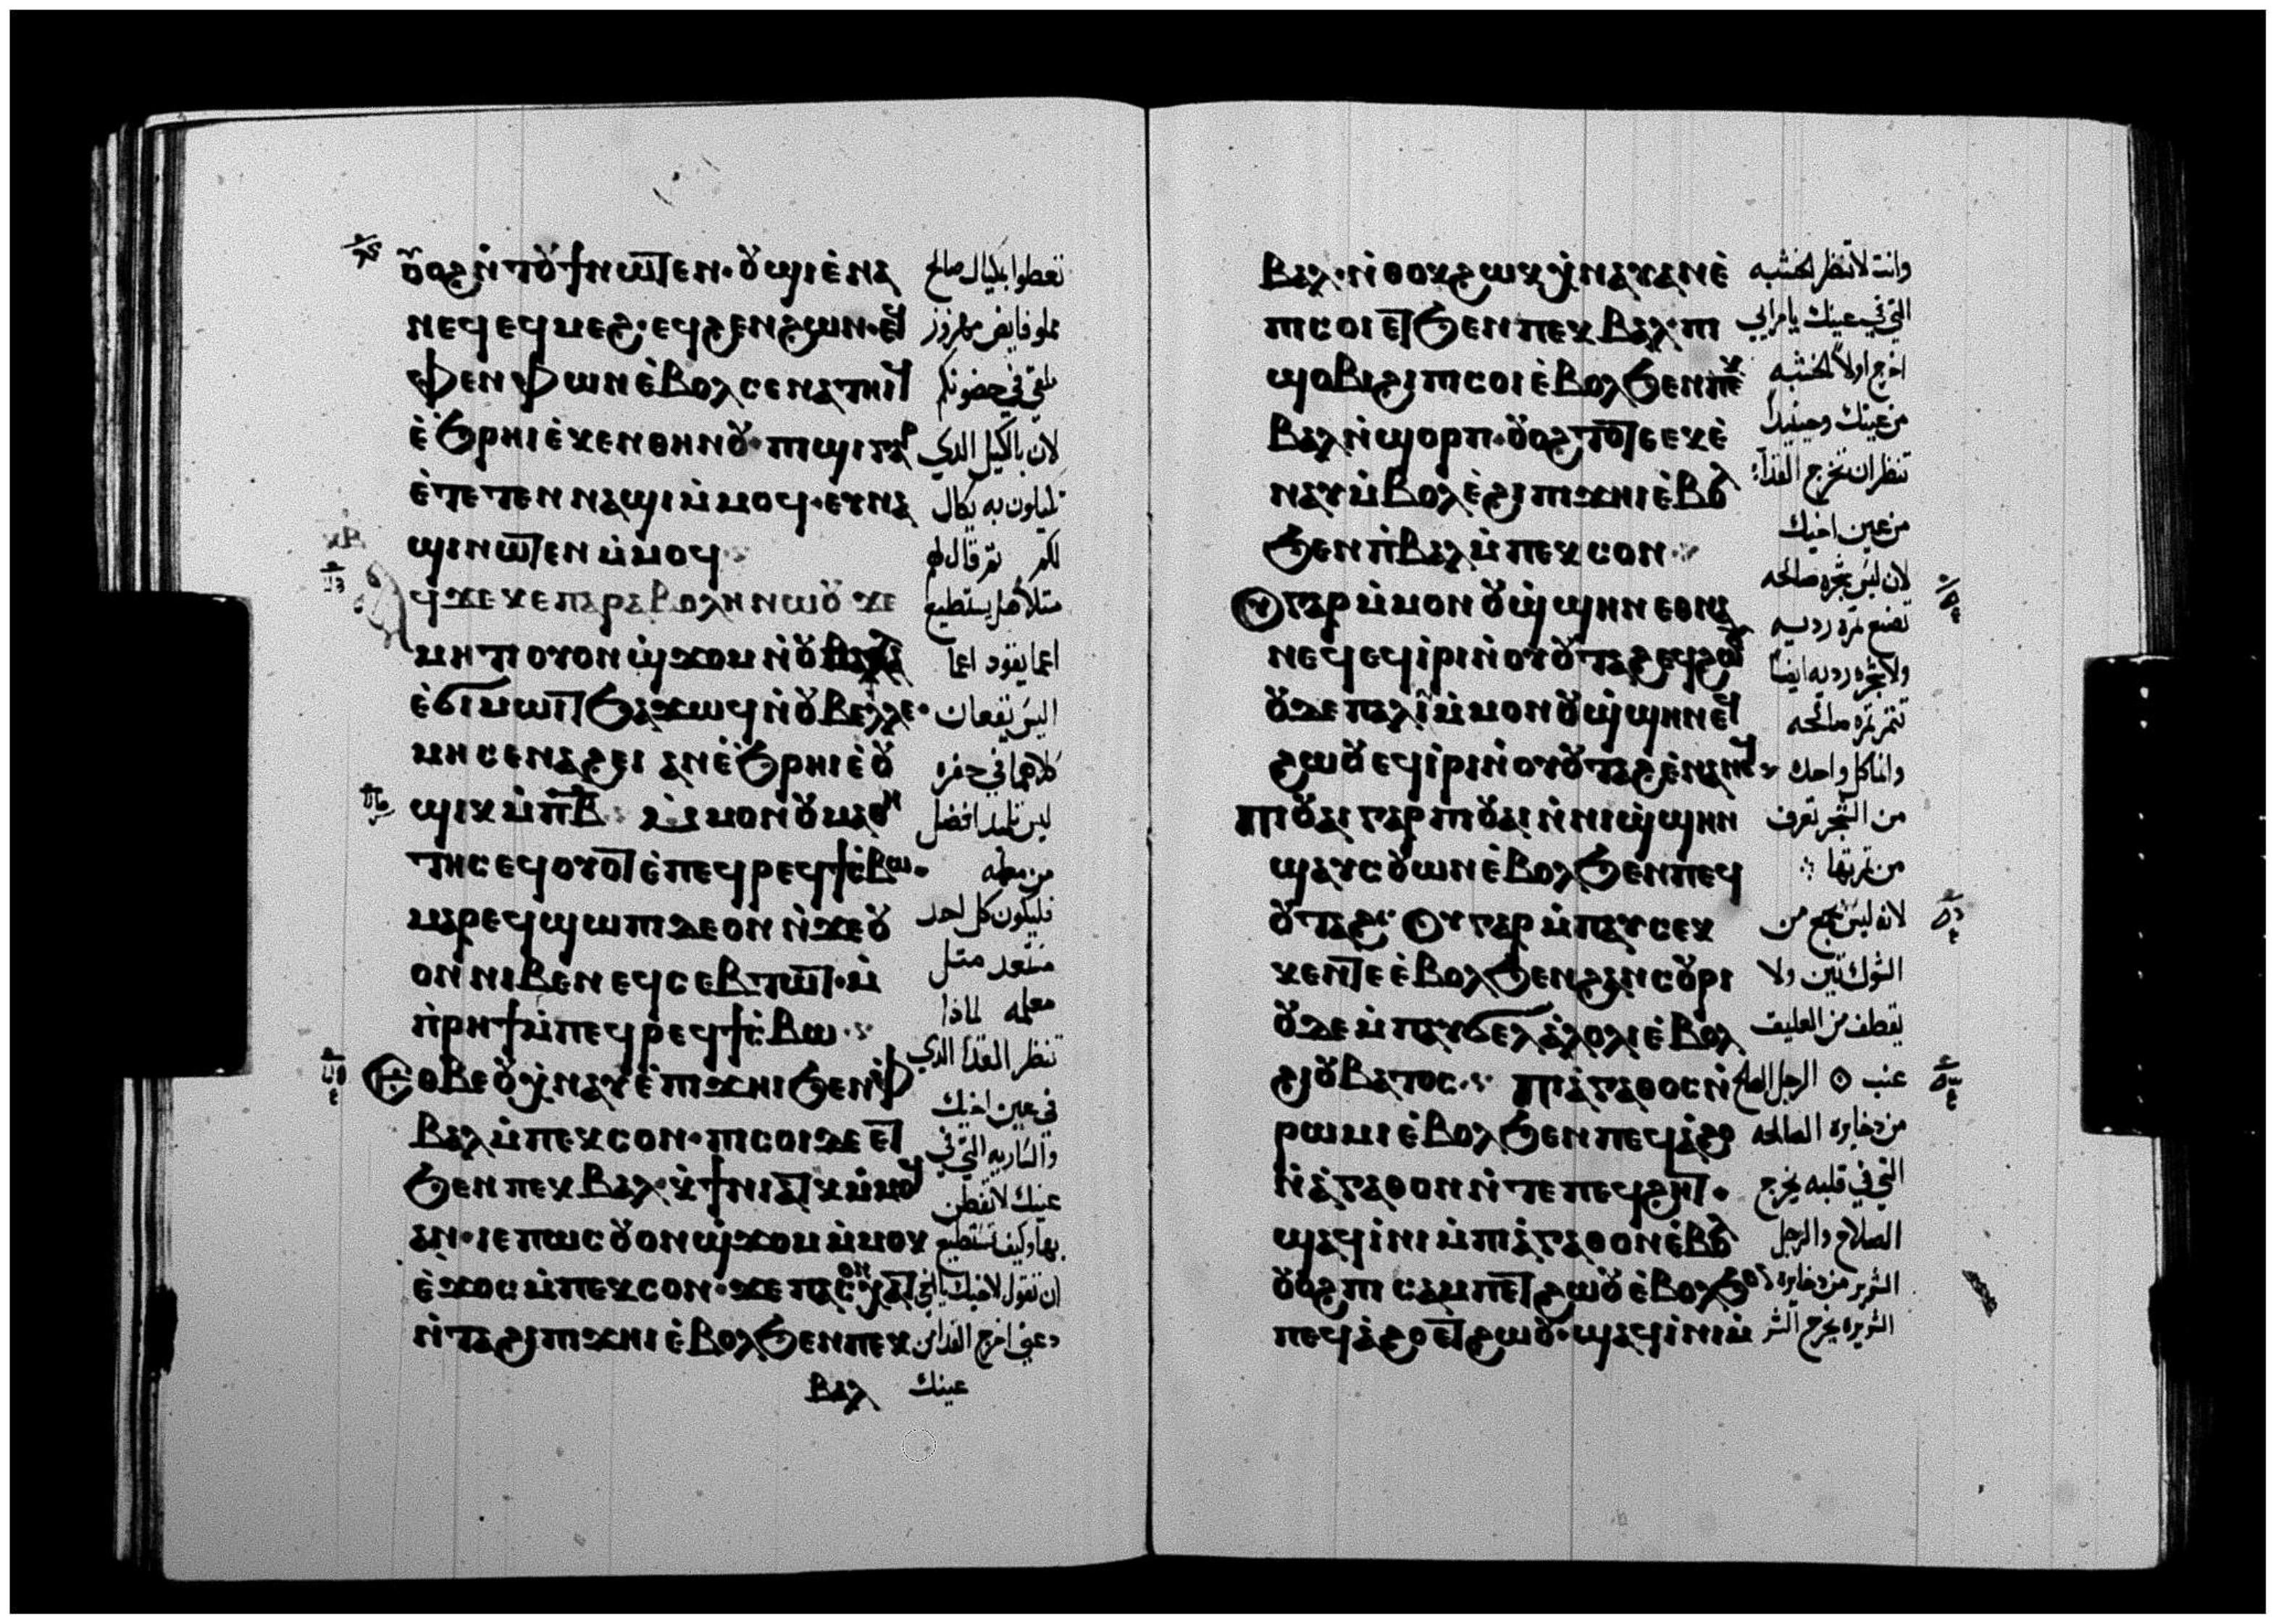 ⲟ̅ⲟϩ ⲛ̀ⲧⲟⲩϯⲛⲱⲧⲉⲛ· ⲟⲩϣⲓ ⲉ̀ⲛⲁ
ⲛⲉϥ ⲉϥⲙⲉϩ· ⲉϥϩⲉⲛϩⲱⲛ· ⲉϥ
ⲫⲉⲛⲫⲱⲛ ⲉ̀ⲃⲟⲗ ⲥⲉⲛⲁⲧⲏⲓϥ
ⲉ̀ϧⲣⲏⲓ ⲉ̀ϫⲉⲛ ⲑⲏⲛⲟⲩ· ⲡⲓϣⲓ ⲅⲁⲣ
ⲉ̀ⲧⲉⲧⲉⲛⲛⲁϣⲓ ⲙ̀ⲙⲟϥ· ⲉⲩⲛⲁ
ϣⲓ ⲛⲱⲧⲉⲛ ⲙ̀ⲙⲟϥ
ϥϫⲉ ⲕⲉⲡⲁⲣⲁⲃⲟⲗⲏ ⲛⲱⲟⲩ ϫⲉ
ⲙⲏⲧⲓ ⲟⲩⲟⲛ ϣ̀ϫⲟⲙ ⲛ̀ⲟⲩⲃⲉⲗⲗⲉ
ⲉ̀ϭⲓⲙⲱⲓⲧ ϧⲁϫⲱϥ ⲛ̀ⲟⲩⲃⲉⲗⲗⲉ·
ⲙⲏ ⲥⲉⲛⲁϩⲉⲓ ⲁⲛ ⲉ̀ϧⲣⲏⲓ ⲉ̀ⲟⲩ
ϣⲓⲕ ⲙ̀ⲡⲃ̅ ⲙ̀ⲙⲟⲛ ⲟⲩⲙⲁⲑⲏ
ⲧⲏⲥ ⲉϥⲟⲩⲟⲧ ⲉ̀ⲡⲉϥⲣⲉϥϯⲥ̀ⲃⲱ·
ⲙⲁⲣⲉϥϣⲱⲡⲓ ⲇⲉ ⲟⲛ ⲛ̀ϫⲉ ⲟⲩ
ⲟⲛ ⲛⲓⲃⲉⲛ ⲉϥⲥⲉⲃⲧⲱⲧ· ⲙ̀
ⲡ̀ⲣⲏϯ ⲙ̀ⲡⲉϥⲣⲉϥϯⲥ̀ⲃⲱ
ⲉⲑⲃⲉⲟⲩ ⲭ̀ⲛⲁⲩ ⲉ̀ⲡⲓϫⲏⲓ ϧⲉⲛ ⲫ
ⲃⲁⲗ ⲙ̀ⲡⲉⲕⲥⲟⲛ· ⲡⲓⲥⲟⲓ ⲇⲉ ⲉⲧ
ϧⲉⲛ ⲡⲉⲕⲃⲁⲗ· ⲕ̀ϯⲛⲓⲁⲧⲕ ⲙ̀ⲙⲟϥ
ⲁⲛ· ⲓⲉ ⲡⲱⲥ ⲟⲩⲟⲛ ϣ̀ϫⲟⲙ ⲙ̀ⲙⲟⲕ
ⲉ̀ϫⲟⲥ ⲙ̀ⲡⲉⲕⲥⲟⲛ· ϫⲉ ⲡⲁⲥⲟⲛ ⲭⲁⲧ
ⲛ̀ⲧⲁϩⲓ ⲡⲓϫⲏⲓ ⲉ̀ⲃⲟⲗ ϧⲉⲛ ⲡⲉⲕ
ⲃⲁⲗ
تعطوا بكيال صالح
مملو فايض مهزوز
ملقي في حضونكم
لان بالكيل الذي
تكيلون به يكال
لكم ثم قال لهم
مثلا هل يستطيع
اعما يقود اعما
اليس يقعان
كلاهما في حفره
ليس تلميذ افضل
من معلمه
فليكون كل احد
مستعد مثل
معلمه لماذا
تنظر القذا الذي
في عين اخيك
والساريه التي في
عينك لا تفطن
بها وكيف تستطيع
ان تقول لاخيك يا اخي
دعني اخرج القذا من
عينك
ⲃⲁⲗ· ⲛ̀ⲑⲟⲕ ϩⲱⲕ ⲭ̀ⲛⲁⲩ ⲁⲛ ⲉ̀
ⲡⲓⲥⲟⲓ ⲉⲧϧⲉⲛ ⲡⲉⲕⲃⲁⲗ· ⲡⲓ
ϣⲟⲃⲓ ϩⲓ ⲡⲓⲥⲟⲓ ⲉ̀ⲃⲟⲗ ϧⲉⲛ ⲡⲉⲕ
ⲃⲁⲗ ⲛ̀ϣⲟⲣⲡ· ⲟⲩⲟϩ ⲧⲟⲧⲉ ⲉⲕⲉ̀
ⲛⲁⲩ ⲙ̀ⲃⲟⲗ ⲉ̀ϩⲓ ⲡⲓϫⲏⲓ ⲉ̀ⲃⲟⲗ
ϧⲉⲛ ⲡ̀ⲃⲁⲗ ⲙ̀ⲡⲉⲕⲥⲟⲛ
ⲟⲩ ⲅⲁⲣ ⲙ̀ⲙⲟⲛ ⲟⲩϣ̀ϣⲏⲛ ⲉⲑⲛⲁ
ⲛⲉϥ ⲉϥⲓ̀ⲣⲓ ⲛ̀ⲟⲩⲟⲩⲧⲁϩ ⲉϥϩⲱⲟⲩ
ⲟⲩⲇⲉ ⲡⲁⲗⲓⲛ ⲙ̀ⲙⲟⲛ ⲟⲩϣ̀ϣⲏⲛ ⲉϥ
ϩⲱⲟⲩ ⲉϥⲓ̀ⲣⲓ ⲛ̀ⲟⲩⲟⲩⲧⲁϩ ⲉ̀ⲛⲁⲛⲉϥ
ⲡⲓⲟⲩⲁⲓ ⲅⲁⲣ ⲡⲓⲟⲩⲁⲓ ⲛ̀ⲛⲓϣ̀ϣⲏⲛ
ϣⲁⲩⲥⲟⲩⲱⲛ ⲉ̀ⲃⲟⲗ ϧⲉⲛ ⲡⲉϥ
ⲟⲩⲧⲁϩ ⲟⲩ ⲅⲁⲣ ⲙ̀ⲡⲁⲩⲥⲉⲕ
ⲕⲉⲛⲧⲉ ⲉ̀ⲃⲟⲗ ϧⲉⲛ ϩⲁⲛⲥⲟⲩⲣⲓ
ⲟⲩⲇⲉ ⲙ̀ⲡⲁⲩϭⲉⲗ ⲁ̀ⲗⲟⲗⲓ ⲉ̀ⲃⲟⲗ
ϩⲓ ⲟⲩⲃⲁⲧⲟⲥ ⲡⲓⲁ̀ⲅⲁⲑⲟⲥ ⲛ̀
ⲣⲱⲙⲓ ⲉ̀ⲃⲟⲗ ϧⲉⲛ ⲡⲉϥⲁ̀ϩⲟ
ⲛ̀ⲁ̀ⲅⲁⲑⲟⲛ ⲛ̀ⲧⲉ ⲡⲉϥϩⲏⲧ·
ϣⲁϥⲓ̀ⲛⲓ ⲙ̀ⲡⲓⲁ̀ⲅⲁⲑⲟⲛ ⲉ̀ⲃⲟⲗ
ⲟⲩⲟϩ ⲡⲓⲥⲁⲙⲡⲉⲧϩⲱⲟⲩ ⲉ̀ⲃⲟⲗ ϧⲉⲛ
ⲡⲉϥⲁ̀ϩⲟ ⲉⲧϩⲱⲟⲩ· ϣⲁϥⲓ̀ⲛⲓ ⲙ̀
وانت لا تنظر الخشبه
التي في عينك يا مرايي
اخرج اولا الخشبه
من عينك وحينيذ
تنظر ان تخرج القذاء
من عين اخيك
لان ليس شجره صالحه
تصنع ثمره رديه
ولا شجره رديه ايضا
تثمر ثمره صالحه
وانما كل واحده
من الشجر تعرف
من ثمرتها
لانه ليس يجمع من
الشوك تين ولا
يقطف من العليق
عنب الرجل الصالح
من ذخايره الصالحه
التي في قلبه يخرج
الصلاح والرجل
الشرير من ذخايره
الشريره يخرج الشر